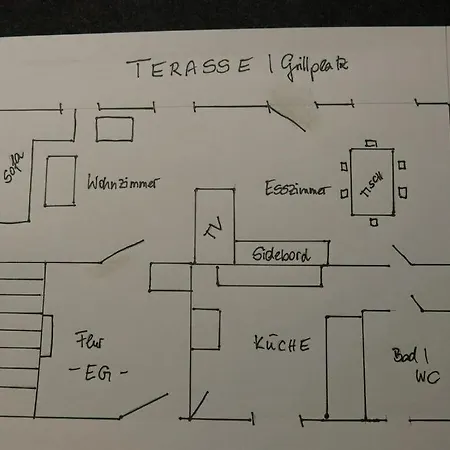 TERASSE | Grillplatz
Sofa
Wohnzimmer
Esszimmer
TISCH
TV
Sidebord
Flur
- EG -
KÜCHE
Bad |
WC